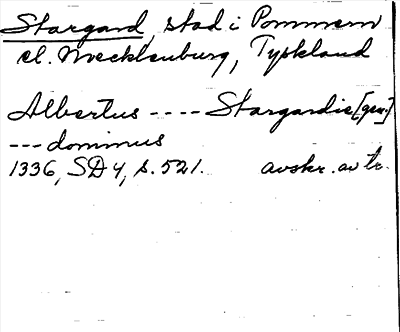 Stargard, stad i Pommern
el. Mecklenburg, Tyskland
Albertus ---- Stargardie [gen.]
--- dominus
1336, SD 4, s. 521. avskr. av tr.